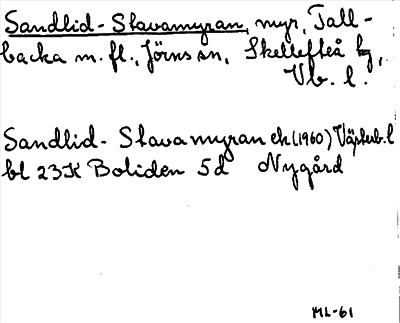 Sandlid-Stavamyran, myr, Tall-
backa m. fl., Jörns sn, Skellefteå kg,
Vb. l.
Sandlid-Stavamyran ek (1960) Västerb. l
bl 23K Boliden 5d Nygård
ML-61